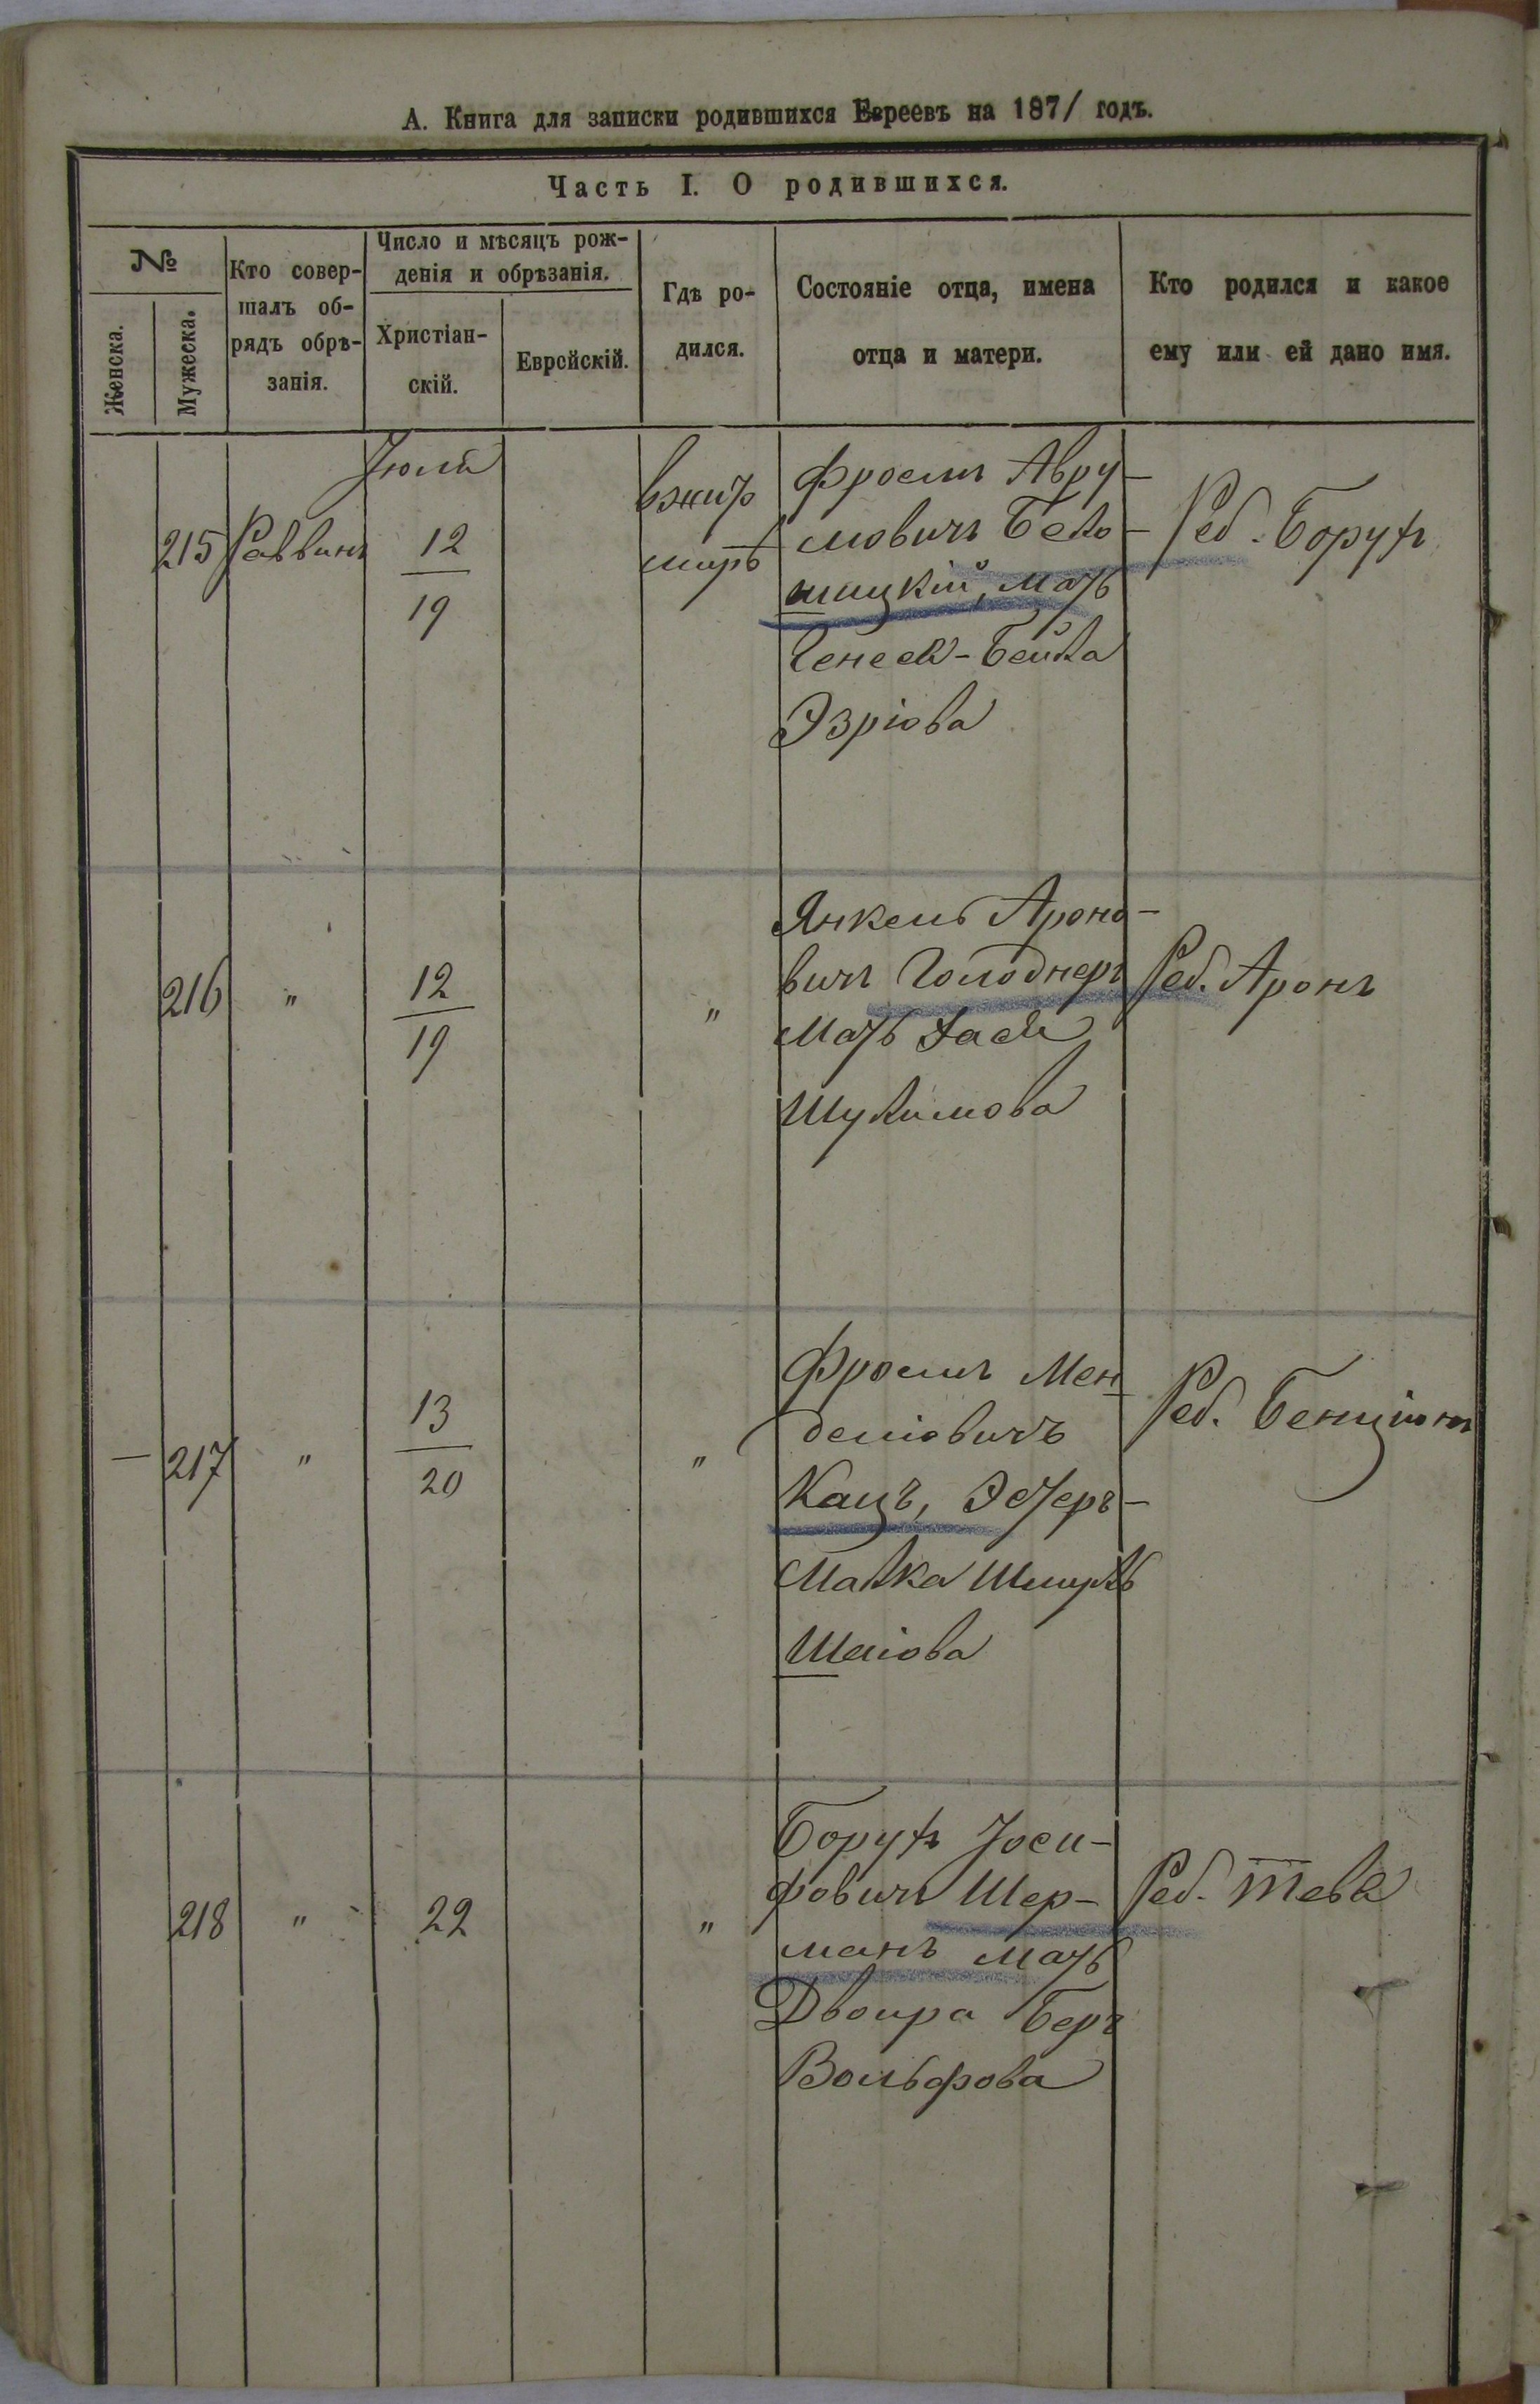 А. Книга для записки родившихся Евреевъ на 1871 годъ.
Часть I. О родившихся.
№
Женска.
Мужеска.
Кто совер-
шалъ об-
рядъ обрѣ-
занія.
Число и мѣсяцъ рож-
денія и обрѣзанія.
Христіан-
скій.
Еврейскій.
Гдѣ ро-
дился.
Состояніе отца, имена
отца и матери.
Кто родился и какое
ему или ей дано имя.
Іюля
215 Раввинъ
12
19
вжит
мирѣ
Фроимъ Авру-
мовичъ Бело-
шицкій, мать
Бейла
Эзріова
Реб. Борухъ
216 "
12
19
"
Янкель Ароно-
вичъ Голоднеръ
Мать Хася
Шулимова
Реб. Аронъ
— 217 "
13
20
"
Фроимъ Мен
деліовичъ
Кацъ, Эстеръ-
Малка
Шаіова
Реб. Бенціонъ
218 "
22
"
Борухъ Іоси-
фовичъ Шер-
манъ мать
Двойра Беръ
Вольфова
Реб. Тевел